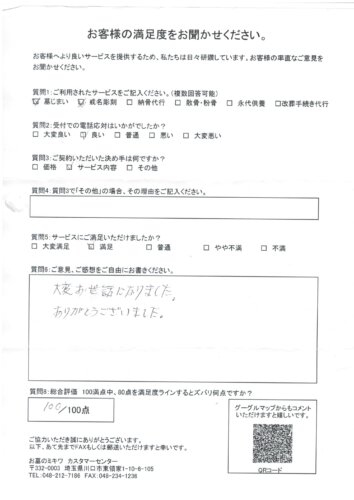 お客様の満足度をお聞かせください。
お客様へより良いサービスを提供するため、私たちは日々研鑽しています。お客様の率直なご意見を
お聞かせください。
質問1:ご利用されたサービスをご記入ください。(複数回答可能)
☑ 墓じまい ☑ 戒名彫刻 □ 納骨代行 □ 散骨・粉骨 □ 永代供養 □改葬手続き代行
質問2:受付での電話応対はいかがでしたか?
□ 大変良い ☑ 良い □ 普通 □ 悪い □ 大変悪い
質問3:ご契約いただいた決め手は何ですか?
□ 価格 ☑ サービス内容 □ その他
質問4:質問3で「その他」の場合、その理由をご記入ください。
質問5:サービスにご満足いただけましたか?
□ 大変満足 ☑ 満足 □ 普通 □ やや不満 □ 不満
質問6:ご意見、ご感想をご自由にお書きください。
大変お世話になりました。
ありがとうございました。
質問8:総合評価 100満点中、80点を満足度ラインするとズバリ何点ですか?
100/100点
グーグルマップからもコメント
いただけますと嬉しいです。
QRコード
ご協力いただき誠にありがとうございます。
以下、あて先までFAXもしくは郵送いただけますと幸いです。
お墓のミキワ カスタマーセンター
〒332-0003 埼玉県川口市東領家1-10-8-105
TEL:048-212-7186 FAX:048-234-1236